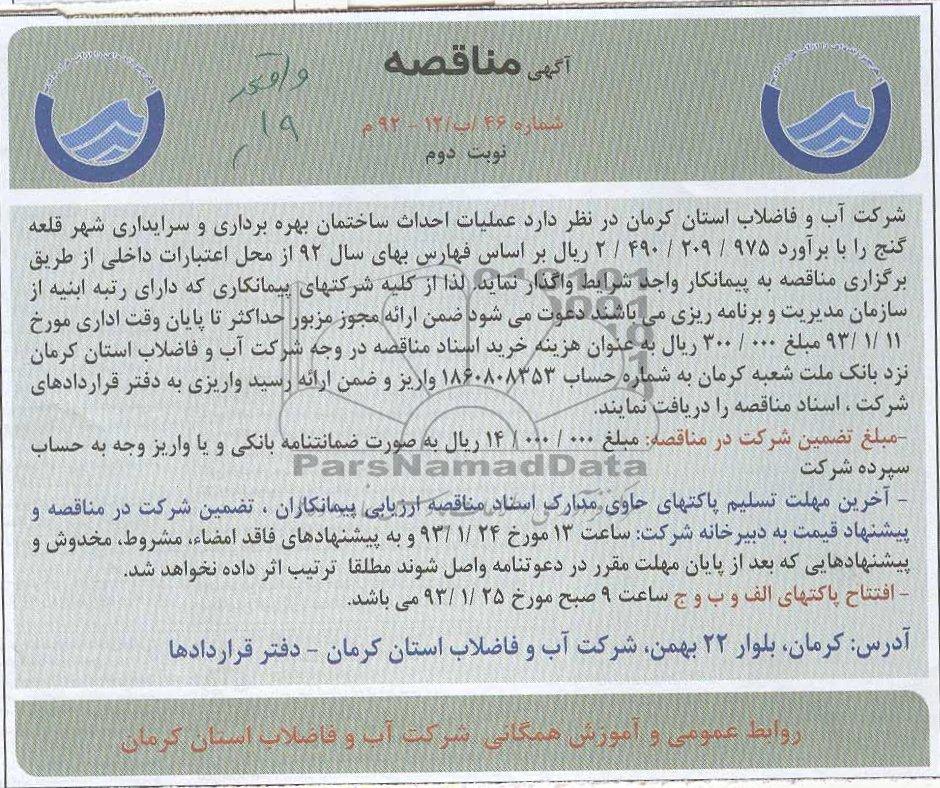 آگهی مناقصه
شماره ۴۶ /ب/۱۲ - ۹۲ م
نوبت دوم
۱۹
شرکت آب و فاضلاب استان کرمان در نظر دارد عملیات احداث ساختمان بهره برداری و سرایداری شهر قلعه
گنج را با برآورد ۹۷۵ / ۲۰۹ / ۴۹۰ / ۲ ریال بر اساس فهارس بهای سال ۹۲ از محل اعتبارات داخلی از طریق
برگزاری مناقصه به پیمانکار واجد شرایط واگذار نماید. لذا از کلیه شرکتهای پیمانکاری که دارای رتبه ابنیه از
سازمان مدیریت و برنامه ریزی می باشند دعوت می شود ضمن ارائه مجوز مزبور حداکثر تا پایان وقت اداری مورخ
۱۱ /۱ /۹۳ مبلغ ۰۰۰ / ۳۰۰ ریال به عنوان هزینه خرید اسناد مناقصه در وجه شرکت آب و فاضلاب استان کرمان
نزد بانک ملت شعبه کرمان به شماره حساب ۱۸۶۰۸۰۸۳۵۳ واریز و ضمن ارائه رسید واریزی به دفتر قراردادهای
شرکت ، اسناد مناقصه را دریافت نمایند.
-مبلغ تضمین شرکت در مناقصه: مبلغ ۰۰۰ / ۰۰۰ / ۱۴ ریال به صورت ضمانتنامه بانکی و یا واریز وجه به حساب
سپرده شرکت
ParsNamadData
- آخرین مهلت تسلیم پاکتهای حاوی مدارک اسناد مناقصه ارزیابی پیمانکاران ، تضمین شرکت در مناقصه و
پیشنهاد قیمت به دبیرخانه شرکت: ساعت ۱۳ مورخ ۲۴ /۱ /۹۳ و به پیشنهادهای فاقد امضاء، مشروط، مخدوش و
پیشنهادهایی که بعد از پایان مهلت مقرر در دعوتنامه واصل شوند مطلقا ترتیب اثر داده نخواهد شد.
- افتتاح پاکتهای الف و ب و ج ساعت ۹ صبح مورخ ۲۵ /۱ /۹۳ می باشد.
آدرس: کرمان، بلوار ۲۲ بهمن، شرکت آب و فاضلاب استان کرمان - دفتر قراردادها
روابط عمومی و آموزش همگانی شرکت آب و فاضلاب استان کرمان